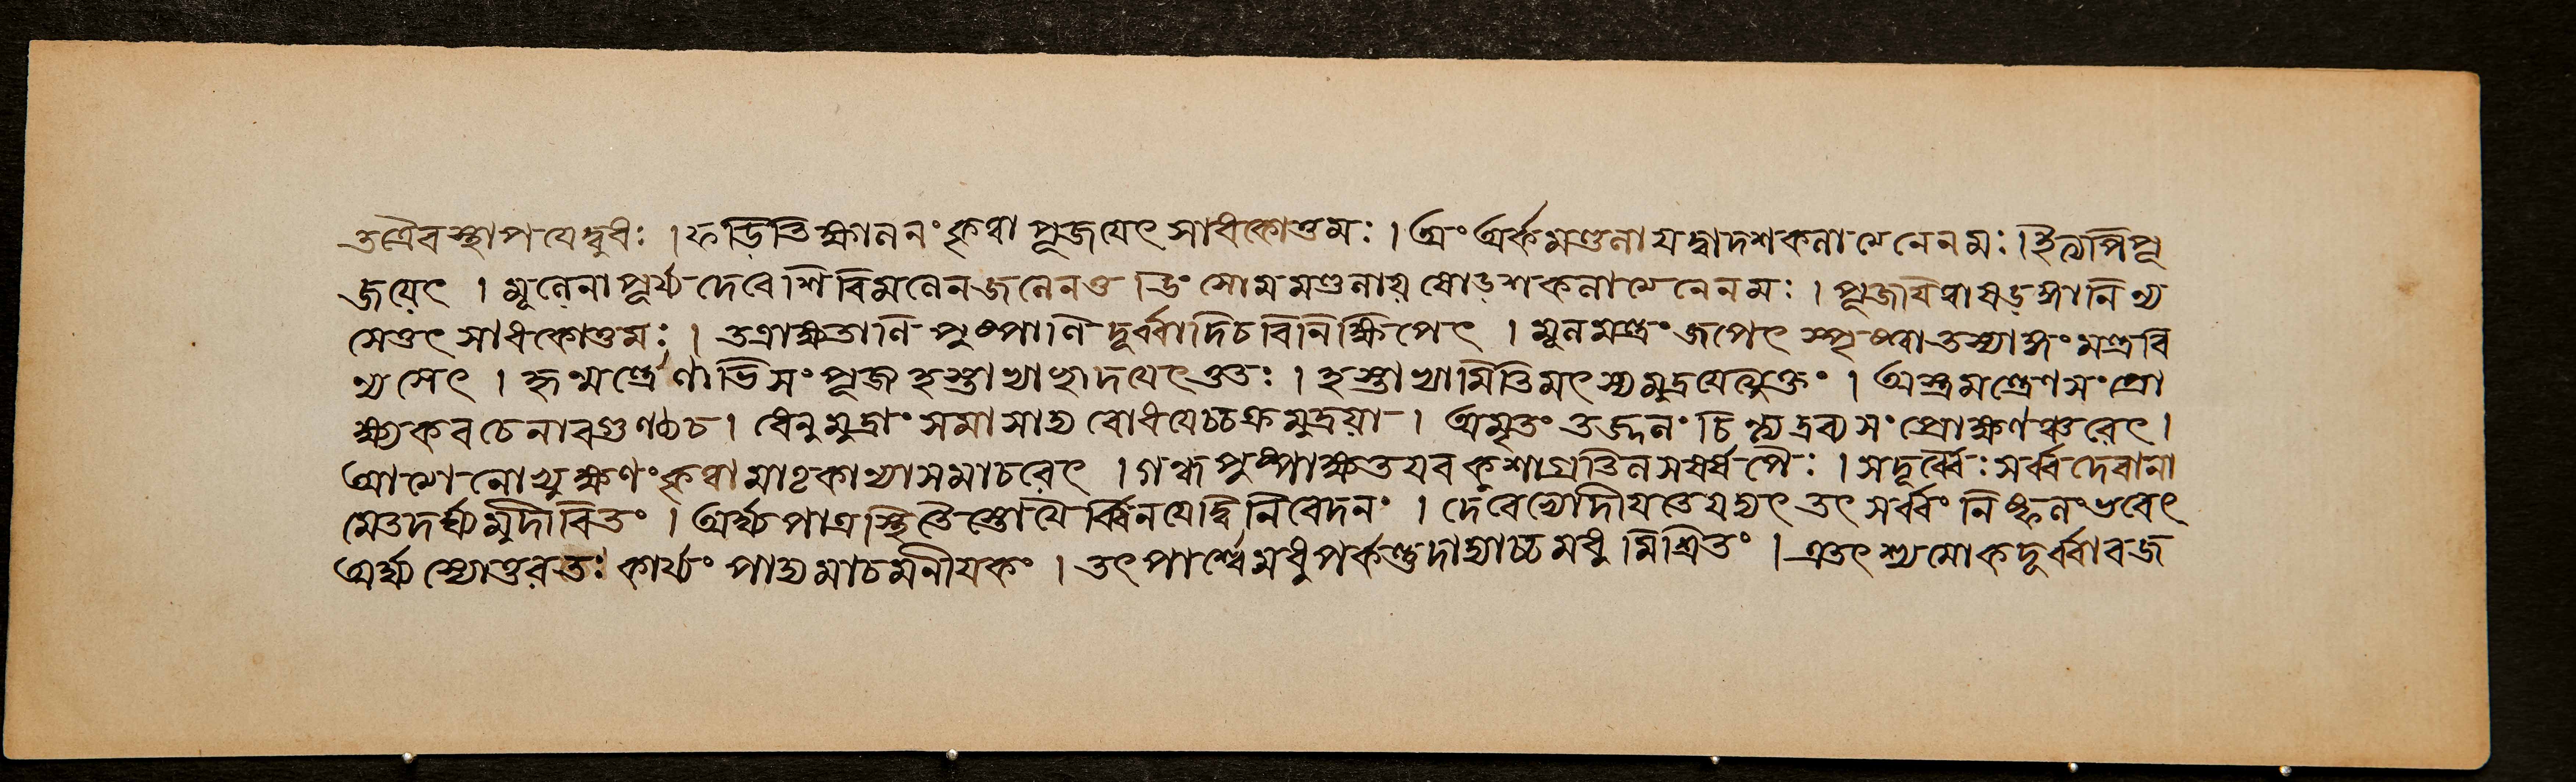 তত্রৈবস্থাপযেদ্বুধঃ । ফডিতিক্ষালনংকৃত্বা পূজযেৎ সাধকোত্তমঃ । অং অর্কমণ্ডলাযদ্বাদশকলাত্মনেনমঃ । ইত্যপিপূ
জযেৎ । মূলেনাপূর্য্যদেবেশিবিমলেনজলেনও উং সোমমণ্ডলায় ষোড়শকলাত্মনেনমঃ । পূজযিত্বাষড়ঙ্গানিন্য
সেত্তৎ সাধকোত্তমঃ । তত্রাক্ষতানি পুষ্পাণি দূর্ব্বাদিচবিনিক্ষিপেৎ । মূলমন্ত্রং জপেৎ স্পৃষ্ট্বাতস্যাঙ্গংমন্ত্রবি
ন্যসেৎ । হৃন্মন্ত্রেণাভিসংপূজ্যহস্তাভ্যাংছাদযেৎততঃ । হস্তাভ্যামিতিমৎস্যমুদ্রযেত্যুক্তং । অস্ত্রমন্ত্রেণসংপ্রো
ক্ষ্যকবচেনাবগুণ্ঠ্যচ । ধেনুমুদ্রাং সমাসাদ্য বোধযেচ্চক্রমুদ্রয়া । অমৃতং তজ্জলং চিন্ত্যদ্রব্যসংপ্রোক্ষণঞ্চরেৎ ।
আত্মনোভ্যুক্ষণংকৃত্বামাতৃকান্যাসমাচরেৎ । গন্ধপুষ্পাক্ষতযবকুশাগ্রতিলসর্ষপৈঃ । সদূর্ব্বৈঃসর্ব্বদেবানা
মেতদর্ঘ্যমুদীরিতং । অর্ঘ্যপাত্রস্থিতৈস্তোযৈর্ব্বিনযেদ্বিনিবেদনং । দেবেভ্যোদীযতেযদ্যৎ তৎ সর্ব্বং নিষ্ফলংভবেৎ
অর্ঘ্যস্যোত্তরতঃ কার্য্যং পাদ্যমাচমনীযকং । তৎপার্শ্বেমধুপর্কন্তুদদ্যাচ্চমধুমিশ্রিতং । এতৎ শ্যামাকদূর্ব্বাব্জ